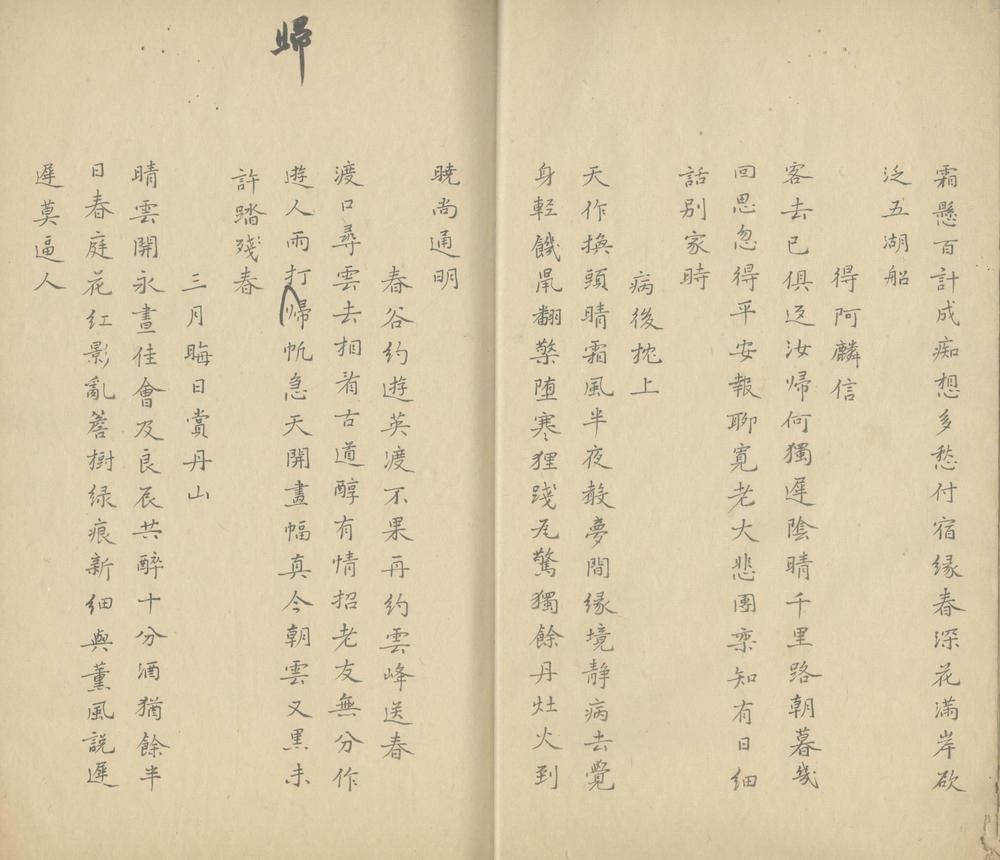 霜懸百計成痴想多愁付宿緣春深花滿岸欲
泛五湖船
得阿麟信
客去已俱返汝歸何獨遲陰晴千里路朝暮幾
回思忽得平安報聊寬老大悲團欒知有日細
話別家時
病後枕上
天作換頭晴霜風半夜數夢間緣境靜病去覺
身輕饑鼠翻檠堕寒狸踐瓦驚獨餘丹灶火到
曉尚通明
春谷約遊英渡不果再約雲峰送春
渡口尋雲去相看古道醇有情招老友無分作
遊人雨打歸帆急天開畫幅真今朝雲又黑未
許踏殘春
三月晦日賞丹山
晴雲開永晝佳會及良辰共醉十分酒猶餘半
日春庭花紅影亂簷樹綠痕新細與薰風說遲
遲莫逼人
歸